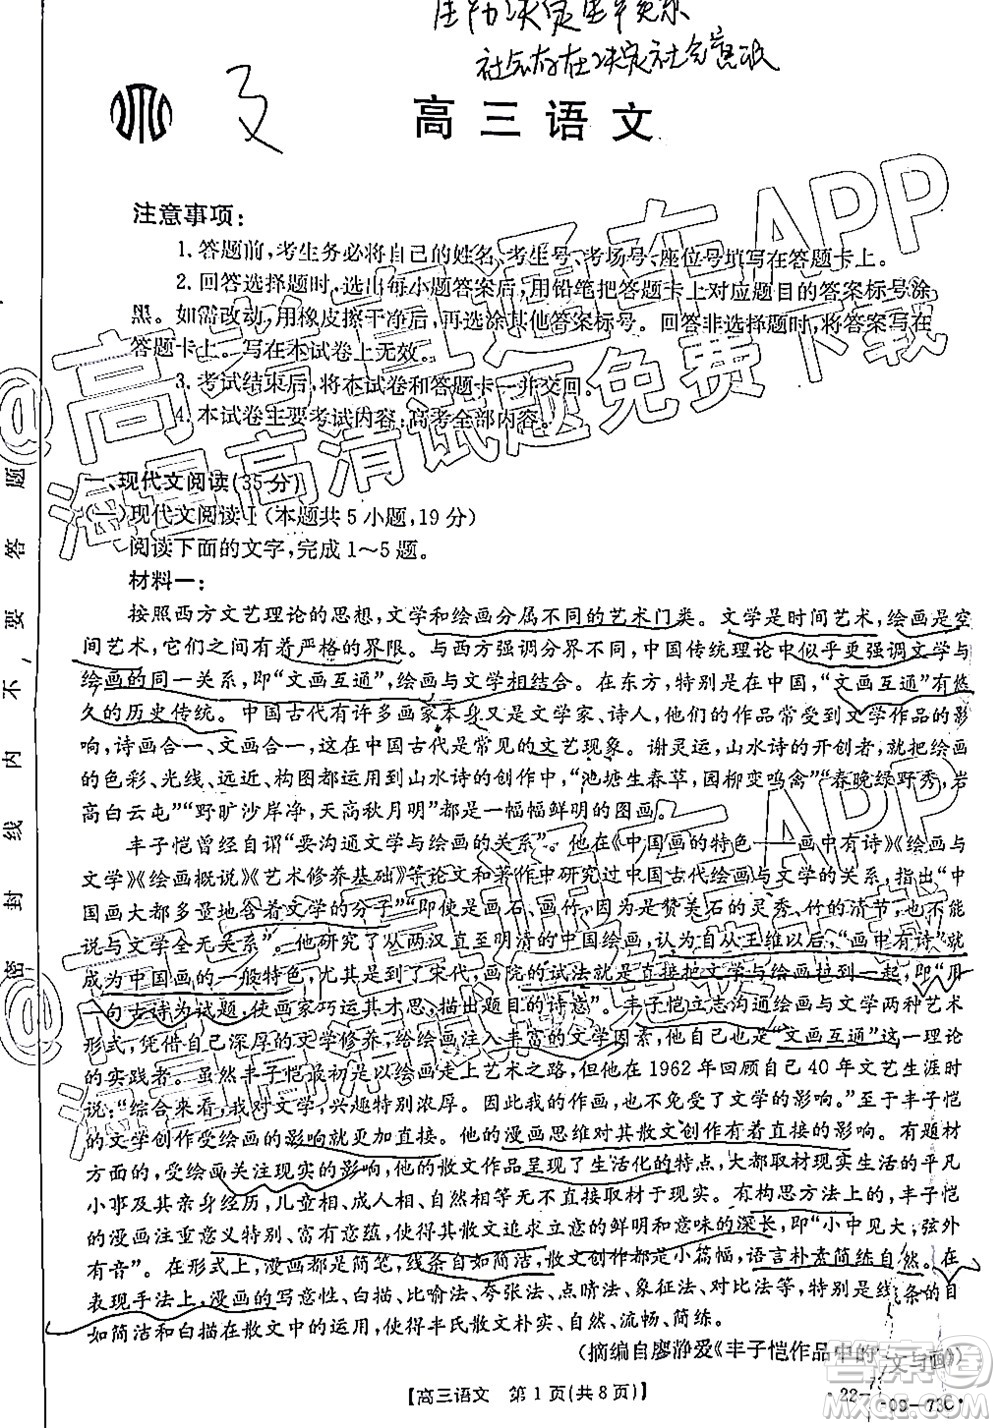 社会存在决定社会意识
高三语文
注意事项:
1.答题前,考生务必将自己的姓名、考生号、考场号、座位号填写在答题卡上。
2.回答选择题时,选出每小题答案后,用铅笔把答题卡上对应题目的答案标号涂
黑。如需改动,用橡皮擦干净后,再选涂其他答案标号。回答非选择题时,将答案写在
答题卡上。写在本试卷上无效。
3.考试结束后,将本试卷和答题卡一并交回。
4.本试卷主要考试内容:高考全部内容。
一、现代文阅读(35分)
(一)现代文阅读Ⅰ(本题共5小题,19分)
阅读下面的文字,完成1~5题。
材料一:
按照西方文艺理论的思想,文学和绘画分属不同的艺术门类。文学是时间艺术,绘画是空
间艺术,它们之间有着严格的界限。与西方强调分界不同,中国传统理论中似乎更强调文学与
绘画的同一关系,即“文画互通”,绘画与文学相结合。在东方,特别是在中国,“文画互通”有悠
久的历史传统。中国古代有许多画家本身又是文学家、诗人,他们的作品常受到文学作品的影
响,诗画合一、文画合一,这在中国古代是常见的文艺现象。谢灵运,山水诗的开创者,就把绘画
的色彩、光线、远近、构图都运用到山水诗的创作中,“池塘生春草,园柳变鸣禽”“春晚绿野秀,岩
高白云屯”“野旷沙岸净,天高秋月明”都是一幅幅鲜明的图画。
丰子恺曾经自谓“要沟通文学与绘画的关系”。他在《中国画的特色——画中有诗》《绘画与
文学》《绘画概说》《艺术修养基础》等论文和著作中研究过中国古代绘画与文学的关系,“中
国画大都多量地含着文学的分子”“即使是画石、画竹,因为是赞美石的灵秀、竹的清节,也不能
说与文学全无关系”。他研究了从两汉直至明清的中国绘画,认为自从王维以后,“画中有诗”就
成为中国画的一般特色,尤其是到了宋代,画院的试法就是直接把文学与绘画拉到一起,即“用
一句古诗为试题,使画家巧运其才思,描出题目的诗意”。丰子恺立志沟通绘画与文学两种艺术
形式,凭借自己深厚的文学修养,给绘画注入丰富的文学因素,他自己也是“文画互通”这一理论
的实践者。虽然丰子恺最初是以绘画走上艺术之路,但他在1962年回顾自己40年文艺生涯时
说:“综合来看,我对文学,兴趣特别浓厚。因此我的作画,也不免受了文学的影响。”至于丰子恺
的文学创作受绘画的影响就更加直接。他的漫画思维对其散文创作有着直接的影响。在题材
方面,受绘画关注现实的影响,他的散文作品呈现了生活化的特点,大都没有取材于生活的平凡
小事及其亲身经历,儿童相、成人相、自然相等无不被其纳入散文之中。有构思方法上,丰子恺
的画注重意义特别、富有意蕴,使得其散文追求立意的鲜明和意味的深长,即“小中见大,弦外
有音”。在形式上,漫画都是小形式,线条自如简洁,散文创作都是小篇幅,语言朴素简练自然。在
表现手法上,漫画的写意性、白描、比喻、夸张法、点睛法、象征法、对比法等,特别是线条的自
如简洁和白描在散文中的运用,使得丰氏散文朴实、自然、流畅、简练。
(摘编自廖静爱《丰子恺作品中的“文与画》)
【高三语文 第1页(共8页)】
·22-7-09-73C·
密封线内不要答题
@高考直通车APP
海量高清试题免费下载
@高考直通车APP
海量高清试题免费下载